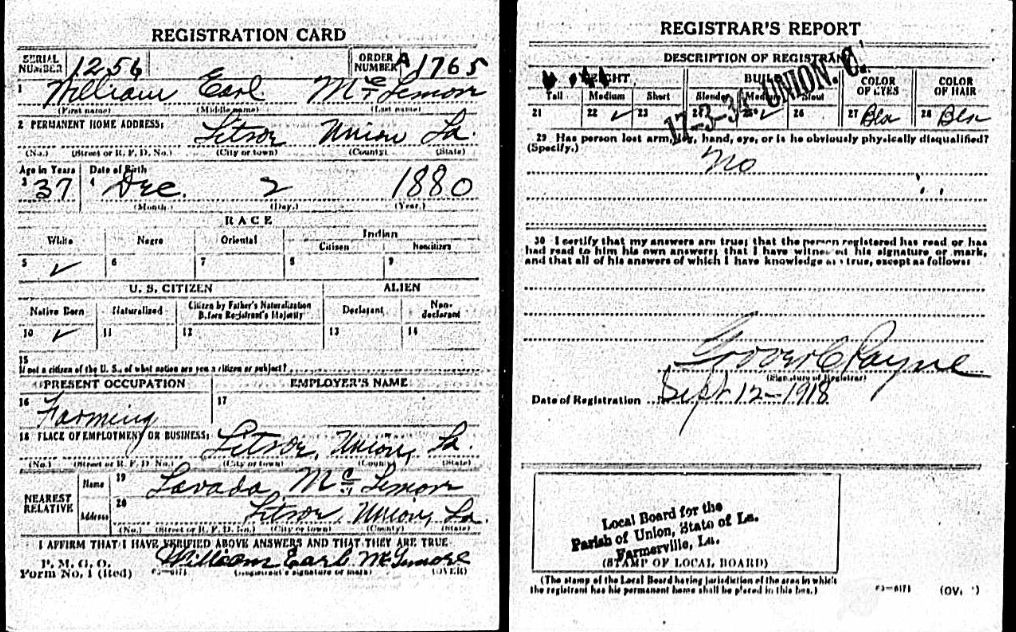 REGISTRATION CARD
SERIAL NUMBER 1256 ORDER NUMBER A1765
1 William Earl McLemore
(First name) (Middle name) (Last name)
2 PERMANENT HOME ADDRESS:
Litroe Union La.
(No.) (Street or R. F. D. No.) (City or town) (County) (State)
Age in Years Date of Birth
3 37 4 Dec. 2 1880
(Month.) (Day.) (Year.)
RACE
White Negro Oriental Indian
Citizen Noncitizen
5 ✓ 6 7 8 9
U. S. CITIZEN ALIEN
Native Born Naturalized Citizen by Father's Naturalization Before Registrant's Majority Declarant Non-declarant
10 ✓ 11 12 13 14
15
If not a citizen of the U. S., of what nation are you a citizen or subject?
PRESENT OCCUPATION EMPLOYER'S NAME
16 Farming 17
18 PLACE OF EMPLOYMENT OR BUSINESS:
Litroe, Union, La.
(No.) (Street or R. F. D. No.) (City or town) (County) (State)
NEAREST RELATIVE Name 19 Lavada McLemore
Address 20 Litroe, Union, La.
(No.) (Street or R. F. D. No.) (City or town) (County) (State)
I AFFIRM THAT I HAVE VERIFIED ABOVE ANSWERS AND THAT THEY ARE TRUE.
P. M. G. O.
Form No. 1 (Red) 03-6171 William Earl McLemore
(Registrant's signature or mark) (OVER)
REGISTRAR'S REPORT
17-3-34 UNION. C.
DESCRIPTION OF REGISTRANT
HEIGHT BUILD COLOR OF EYES COLOR OF HAIR
Tall Medium Short Slender Medium Stout
21 22 ✓ 23 24 25 ✓ 26 27 Bla 28 Bla
29 Has person lost arm, leg, hand, eye, or is he obviously physically disqualified? (Specify.)
No
30 I certify that my answers are true; that the person registered has read or has
had read to him his own answers; that I have witnessed his signature or mark,
and that all of his answers of which I have knowledge are true, except as follows:
Grover C Payne
(Signature of Registrar)
Date of Registration Sept 12-1918
Local Board for the
Parish of Union, State of La.
Farmerville, La.
(STAMP OF LOCAL BOARD)
(The stamp of the Local Board having jurisdiction of the area in which
the registrant has his permanent home shall be placed in this box.)
03-6171 (OV